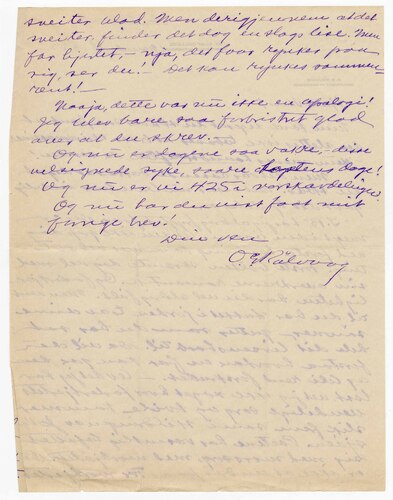 sveiter blod. Men derigjennem at det
sveiter, finder det dog en slags lise. Men
for hjertet, – nja, det faar rynkes paa
sig, ser du! – Det kan rynkes sammen
rent! –
Naaja, dette var nu isse en apologi!
Jeg blev bare saa forbistret glad
over at du skrev.
Og nu er dagene saa vakre, – disse
velsignede syke, saare høstens dage!
Og nu er vi 425 i
Og nu har du vist faat mit
forrige brev!
Din ven
O. E. Rølvaag